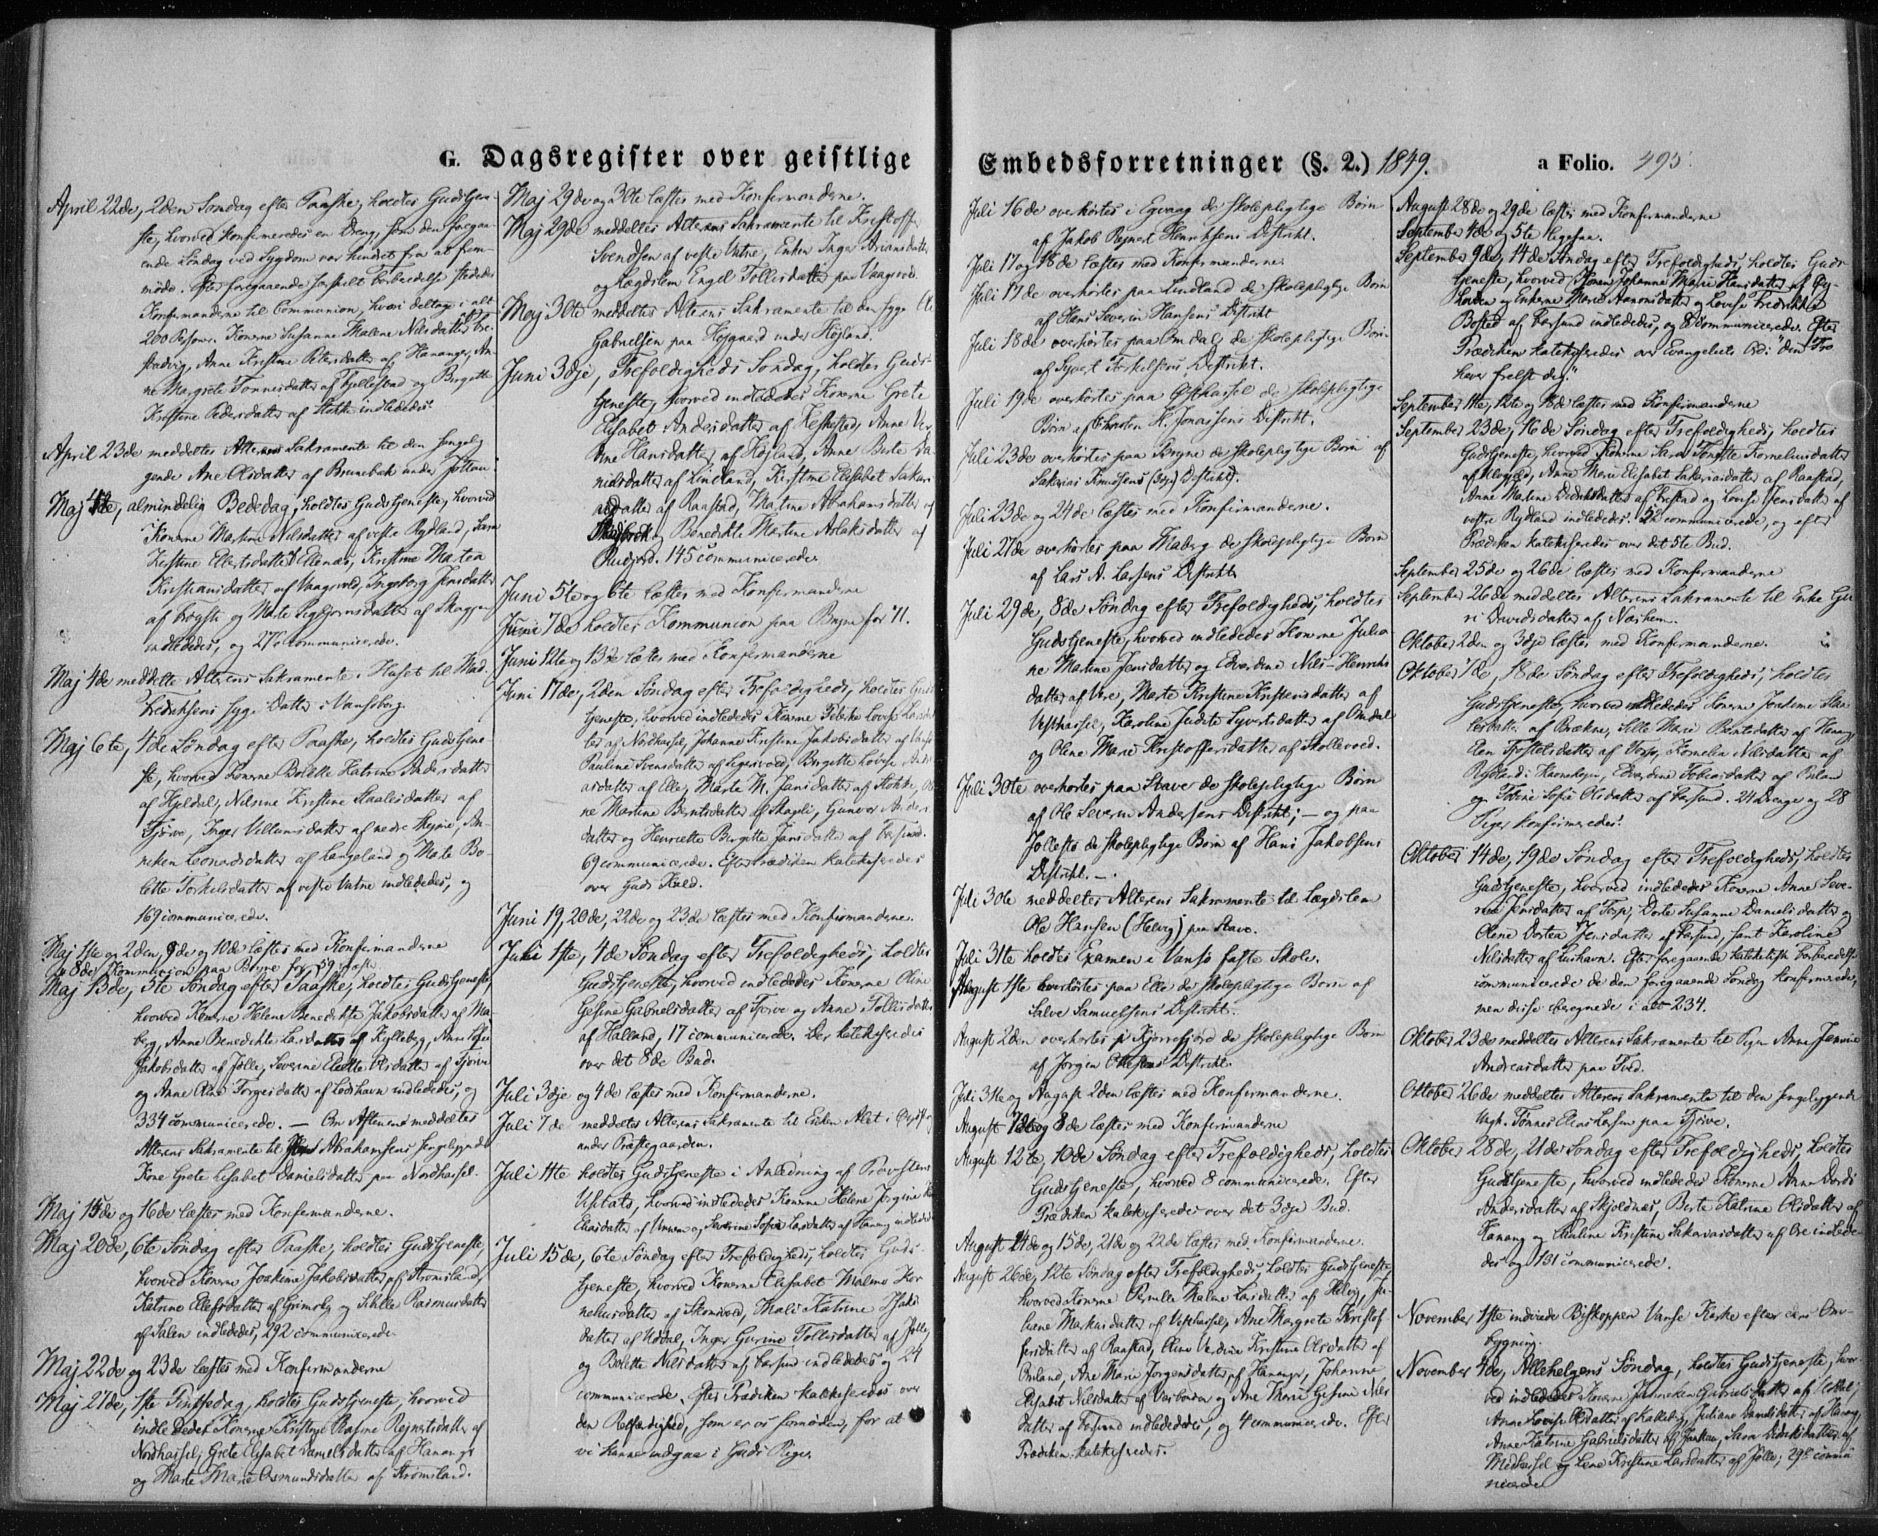 G. Dagsregister over geistlige
April 22de, 2den Søndag efter Paaske, holdtes Gudstjene-
ste, hvorved konfirmeredes en Dreng, som den foregaa-
ende Søndag ved Sygdom var hindret fra at frem-
møde. Efter foregaaende særskilt Forberedelse stededes
Konfirmanderne til Communion, hvori deltoge i alt
200 Personer. Konerne Susanne Malene Nilsdatter
Anne Kristine Petersdatter af Hananger, An-
ne Margrete Tønnesdatter af Fjellestad og Birgitte
Kristine Pedersdatter af Stokke indlededes.
April 23de meddeltes Alterens Sakramente til den sengelig-
gende Ane Olsdatter af Brunebek under Jølton.
Maj 4de, almindelig Bededag, holdtes Gudstjeneste, hvorved
Konerne Martine Nilsdatter af vestre Rydland, Sara
Kristine Ellertsdatter Ellenæs, Kristine Martea
Kristiansdatter af Vaagsvold, Ingeborg Jensdatter
af Brogste og Marte Sigbjørnsdatter af Skeggen
indlededes, og 271 communicerede.
Maj 4de meddelte Alterens Sakramente i Huset til Mad.
Fredriksens syge Datter i Vansborg.
Maj 6te, 4de Søndag efter Paaske, holdtes Gudstjene-
ste, hvorved Konerne Bolette Katrine Andersdatter
af Hjeldal, Nilsine Kristine Staalesdatter af
Tjørve, Inger Villumsdatter af nedre Thejne, An-
neken Leonardsdatter af Langeland og Marte Bo-
lette Torkelsdatter af vestre Vatne indlededes, og
169 communicerede.
Maj 1ste og 2den, 9de og 10de læstes med Konfirmanderne
8de Kommunion paa Bryne for 59
Maj 13de, 5te Søndag efter Paaske, holdtes Gudstjeneste,
hvorved Konerne Helene Benedikte Jakobsdatter af Ma-
berg, Anne Benedikte Larsdatter af Kylleberg, Anne Sofie
Jakobsdatter af Jølle, Severine Elette Olsdatter af Tjørve
og Anne Oline Torgesdatter af Loshavn indlededes, og
334 communicerede. — Om Aftenen meddeltes
Alterens Sakramente til Abrahamsens sengeliggende
Kone Grete Elisabet Danielsdatter paa Nordhassel.
Maj 15de og 16de læstes med Konfirmanderne.
Maj 20de, 6te Søndag efter Paaske, holdtes Gudstjeneste,
hvorved Konerne Joakime Jakobsdatter af Strømsland,
Katrine Ellefsdatter af Grimsby og Sille Rasmusdatter
af Salen indlededes, 292 communicerede.
Maj 22de og 23de læstes med Konfirmanderne
Maj 27de, 1ste Pintsedag, holdtes Gudstjeneste, hvorved
indlededes Konerne Kristine Rejnertsdatter af
Nordhassel, Grete Elisabet Danielsdatter af Hananger
og Marte Marie Osmundsdatter af Strømsland.
Maj 29de og 30te læstes med Konfirmanderne.
Maj 29de meddeltes Alterens Sakramente til Kristoffer
Svendsen af vestre Vatne, Enken Inger Ariansdatter
og Lægdslem Engel Tollisdatter paa Vaagsvold.
Maj 30te meddeltes Alterens Sakramente til den syge Ole
Gabrielsen paa Højgaard under Højland.
Juni 3dje, Trefoldigheds Søndag, holdtes Guds-
tjeneste, hvorved indlededes Konerne Grete
Elisabet Andersdatter af Kjelstad, Anne
Hansdatter af Højland, Anne Berte Da-
nielsdatter af Lindland, Kirstine Elisabet Sakari-
asdatter af Raastad, Martine Abrahamsdatter af
og Benedikte Martine Aslaksdatter af
Rudjord. 145 communicerede
Juni 5te og 6te læstes med Konfirmanderne
Juni 7de holdtes Kommunion paa Bryne for 71.
Juni 12te og 13de læstes med Konfirmanderne
Juni 17de, 2den Søndag efter Trefoldigheds, holdtes Guds-
tjeneste, hvorved indlededes Konerne Peterke Lovise Larsdat-
ter af Nordhassel, Johanne Kristine Jakobsdatter af Vanse
Pauline Svensdatter af Ligesvold, Birgitte Lovise Andre-
asdatter af Elle, Marte M. Jansdatter af Stokke, Ol-
ne Martine Berntsdatter af Skagli, Gunvor Anders-
datter og Henriette Birgitte Jansdatter af Farsund.
69 communicerede. Efter Prædiken katekiseredes
over Guds Kald.
Juni 19, 20de, 22de og 23de læstes med Konfirmanderne.
Juli 1ste, 4de Søndag efter Trefoldigheds, holdtes
Gudstjeneste, hvorved indlededes Konerne Oline
Gesine Gabrielsdatter af Tjørve og Anne Tollisdatter
af Halland, 17 communicerede. Der katekiseredes
over det 8de Bud.
Juli 3dje og 4de læstes med Konfirmanderne.
Juli 7de meddeltes Alterens Sakramente til Enken Alet i
under Præstegaarden.
Juli 11te holdtes Gudstjeneste i Anledning af Provstens
Visitats, hvorved indlededes Konerne Helene Jørgine
Eliasdatter af Vansem og Severine Sofie Larsdatter af Hanang indlededes
Juli 15de, 6te Søndag efter Trefoldigheds, holdtes Guds-
tjeneste, hvorved Konerne Elisabet Malene Kor-
neliusdatter af Skonevold, Thale Katrine Isaks-
datter af Uddal, Inger Gurine Tollisdatter af Jølle
og Bolette Nilsdatter af Farsund indlededes og 24
communicerede. Efter Prædiken katekiseredes over
den Retfærdighed, som er os fornøden, for at
vi kunne indgaae i Guds Rige.
Embedsforretninger (§. 2.) 1849. a Folio. 495
Juli 16de overhørtes i Egvaag de skolepligtige Børn
af Jakob Rejnert Henriksens Distrikt.
Juli 17 og 18de læstes med Konfirmanderne.
Juli 17de overhørtes paa Lindland de skolepligtige Børn
af Hans Severin Hansens Distrikt
Juli 18de overhørtes paa Omdal de skolepligtige Børn
af Syvert Torkelsens Distrikt.
Juli 19de overhørtes paa Østhassel de skolepligtige
Børn af Thorsten K. Jonassens Distrikt.
Juli 23de overhørtes paa Bryne de skolepligtige Børn af
Sakarias Knudsens (3dje) Distrikt.
Juli 23de og 24de læstes med Konfirmanderne.
Juli 27de overhørtes paa Maberg de skolepligtige Børn
af Lars A. Larsens Distrikt
Juli 29de, 8de Søndag efter Trefoldigheds, holdtes
Gudstjeneste, hvorved indlededes Konerne Julia-
ne Martine Jensdatter og Edvardine Nils-Henriks
datter af Ore, Marte Kristine Kristensdatter af
Vesthassel, Karoline Judite Syvertsdatter af Omdal
og Oline Marie Kristoffersdatter af Skollevold.
Juli 30te overhørtes paa Stave de skolepligtige Børn
af Ole Severin Andersens Distrikt; — og paa
Jøllestø de skolepligtige Børn af Hans Jakobsens
Distrikt. —
Juli 30te meddeltes Alterens Sakramente til Lægdslem
Ole Hansen (Helvig) paa Stave.
Juli 31te holdtes Examen i Vansø faste Skole.
August 1ste overhørtes paa Elle de skolepligtige Børn af
Salve Samuelsens Distrikt.
August 2den overhørtes i Kjørrefjord de skolepligtige Børn
af Jørgen Ottesens Distrikt.
Juli 31te og August 2den læstes med Konfirmanderne.
August 7de og 8de læstes med Konfirmanderne
August 12te, 10de Søndag efter Trefoldigheds, holdtes
Gudstjeneste, hvorved 8 communicerede. Efter
Prædiken katekiseredes over det 3dje Bud.
August 14de og 15de, 21de og 22de læstes med Konfirmanderne.
August 26de, 12te Søndag efter Trefoldigheds, holdtes Gudstjeneste,
hvorved Konerne Pernille Malene Larsdatter af Helvig, Ju-
liane Markusdatter af Vesthassel, Ane Margrete Kristof-
fersdatter af Raastad, Oline Verdine Kristine Olsdatter af
Ouland, Ane Marie Jørgensdatter af Hananger, Johanne
Elisabet Nilsdatter af Verbunden og Ane Marie Gesine Nils
datter af Farsund indlededes, og 4 communicerede. Efter
Prædiken katekiseredes.
August 28de og 29de læstes med Konfirmanderne
September 4de og 5te ligesaa.
September 9de, 14de Søndag efter Trefoldigheds, holdtes Guds-
tjeneste, hvorved Konen Johanne Marie Hansdatter af
og Enkerne Marie Aanonsdatter og Lovise Fredrikke
Bosted af Farsund indlededes, og 8 communicerede. Efter
Prædiken katekiseredes over Evangeliets Ord: "den Tro
haver frelst dig."
September 11te, 12te og 18de læstes med Konfirmanderne
September 23de, 16de Søndag efter Trefoldigheds, holdtes
Gudstjeneste, hvorved Konerne Sara Tonette Korneliusdatter
af Anne Marie Elisabet Sakariasdatter af Raastad,
Anne Martine Didriksdatter af Frestad og Lovise Jensdatter af
vestre Rydland indlededes. 52 communicerede, og efter
Prædiken katekiseredes over det 5te Bud.
September 25de og 26de læstes med Konfirmanderne
September 26de meddeltes Alterens Sakramente til Enke Gu-
ri Davidsdatter af Næshem.
Oktober 2den og 3dje læstes med Konfirmanderne.
Oktober 7de, 18de Søndag efter Trefoldigheds, holdtes
Gudstjeneste, hvorved indlededes Konerne Joakime Staa-
lesdatter af Brækne, Sille Marie Berntsdatter af Hanang
Elen Tjøstelsdatter af Torp, Kornelia Nilsdatter af
Rydlands Edvardine Tobiasdatter af Ouland
og Tobine Sofie Olsdatter af Farsund. 24 Drenge og 28
Piger konfirmeredes.
Oktober 14de, 19de Søndag efter Trefoldigheds, holdtes
Gudstjeneste, hvorved indlededes Konerne Anne Seve-
rine Jensdatter af Torp, Dorte Susanne Danielsdatter og
Oline Dortea Jensdatter af Farsund, samt Karoline
Nilsdatter af Loshavn. Efter foregaaende katekisk Forberedelse
communicerede de den foregaaende Søndag Konfirmerede,
men disse beregnede i alt 234.
Oktober 23de meddeltes Alterens Sakramente til Pigen Anne Jamine
Andreasdatter paa Tved.
Oktober 26de meddeltes Alterens Sakramente til den sengeliggende
Ungk. Tønnes Eliaskersen paa Tjørve.
Oktober 28de, 21de Søndag efter Trefoldigheds, holdtes
Gudstjeneste, hvorved indlededes Konerne Anne Dordi
Andersdatter af Skjoldnæs, Berte Katrine Olsdatter af
Hanang og Pauline Kristine Sakariasdatter af Ore indlede-
des og 131 communicerede.
November 1ste indviede Biskoppen Vanse Kirke efter dens Om-
bygning.
November 4de, Allehelgens Søndag, holdtes Gudstjeneste, hvor-
ved indlededes Konerne Janneken Gabrielsdatter af Uddal,
Anne Lovise Olsdatter af Kalleberg, Juliane Danielsdatter af Hanang,
Anne Katrine Gabrielsdatter af Sara Didriksdatter af
Midhassel og Lene Kristine Larsdatter af Jølle; 292 commu-
nicerede